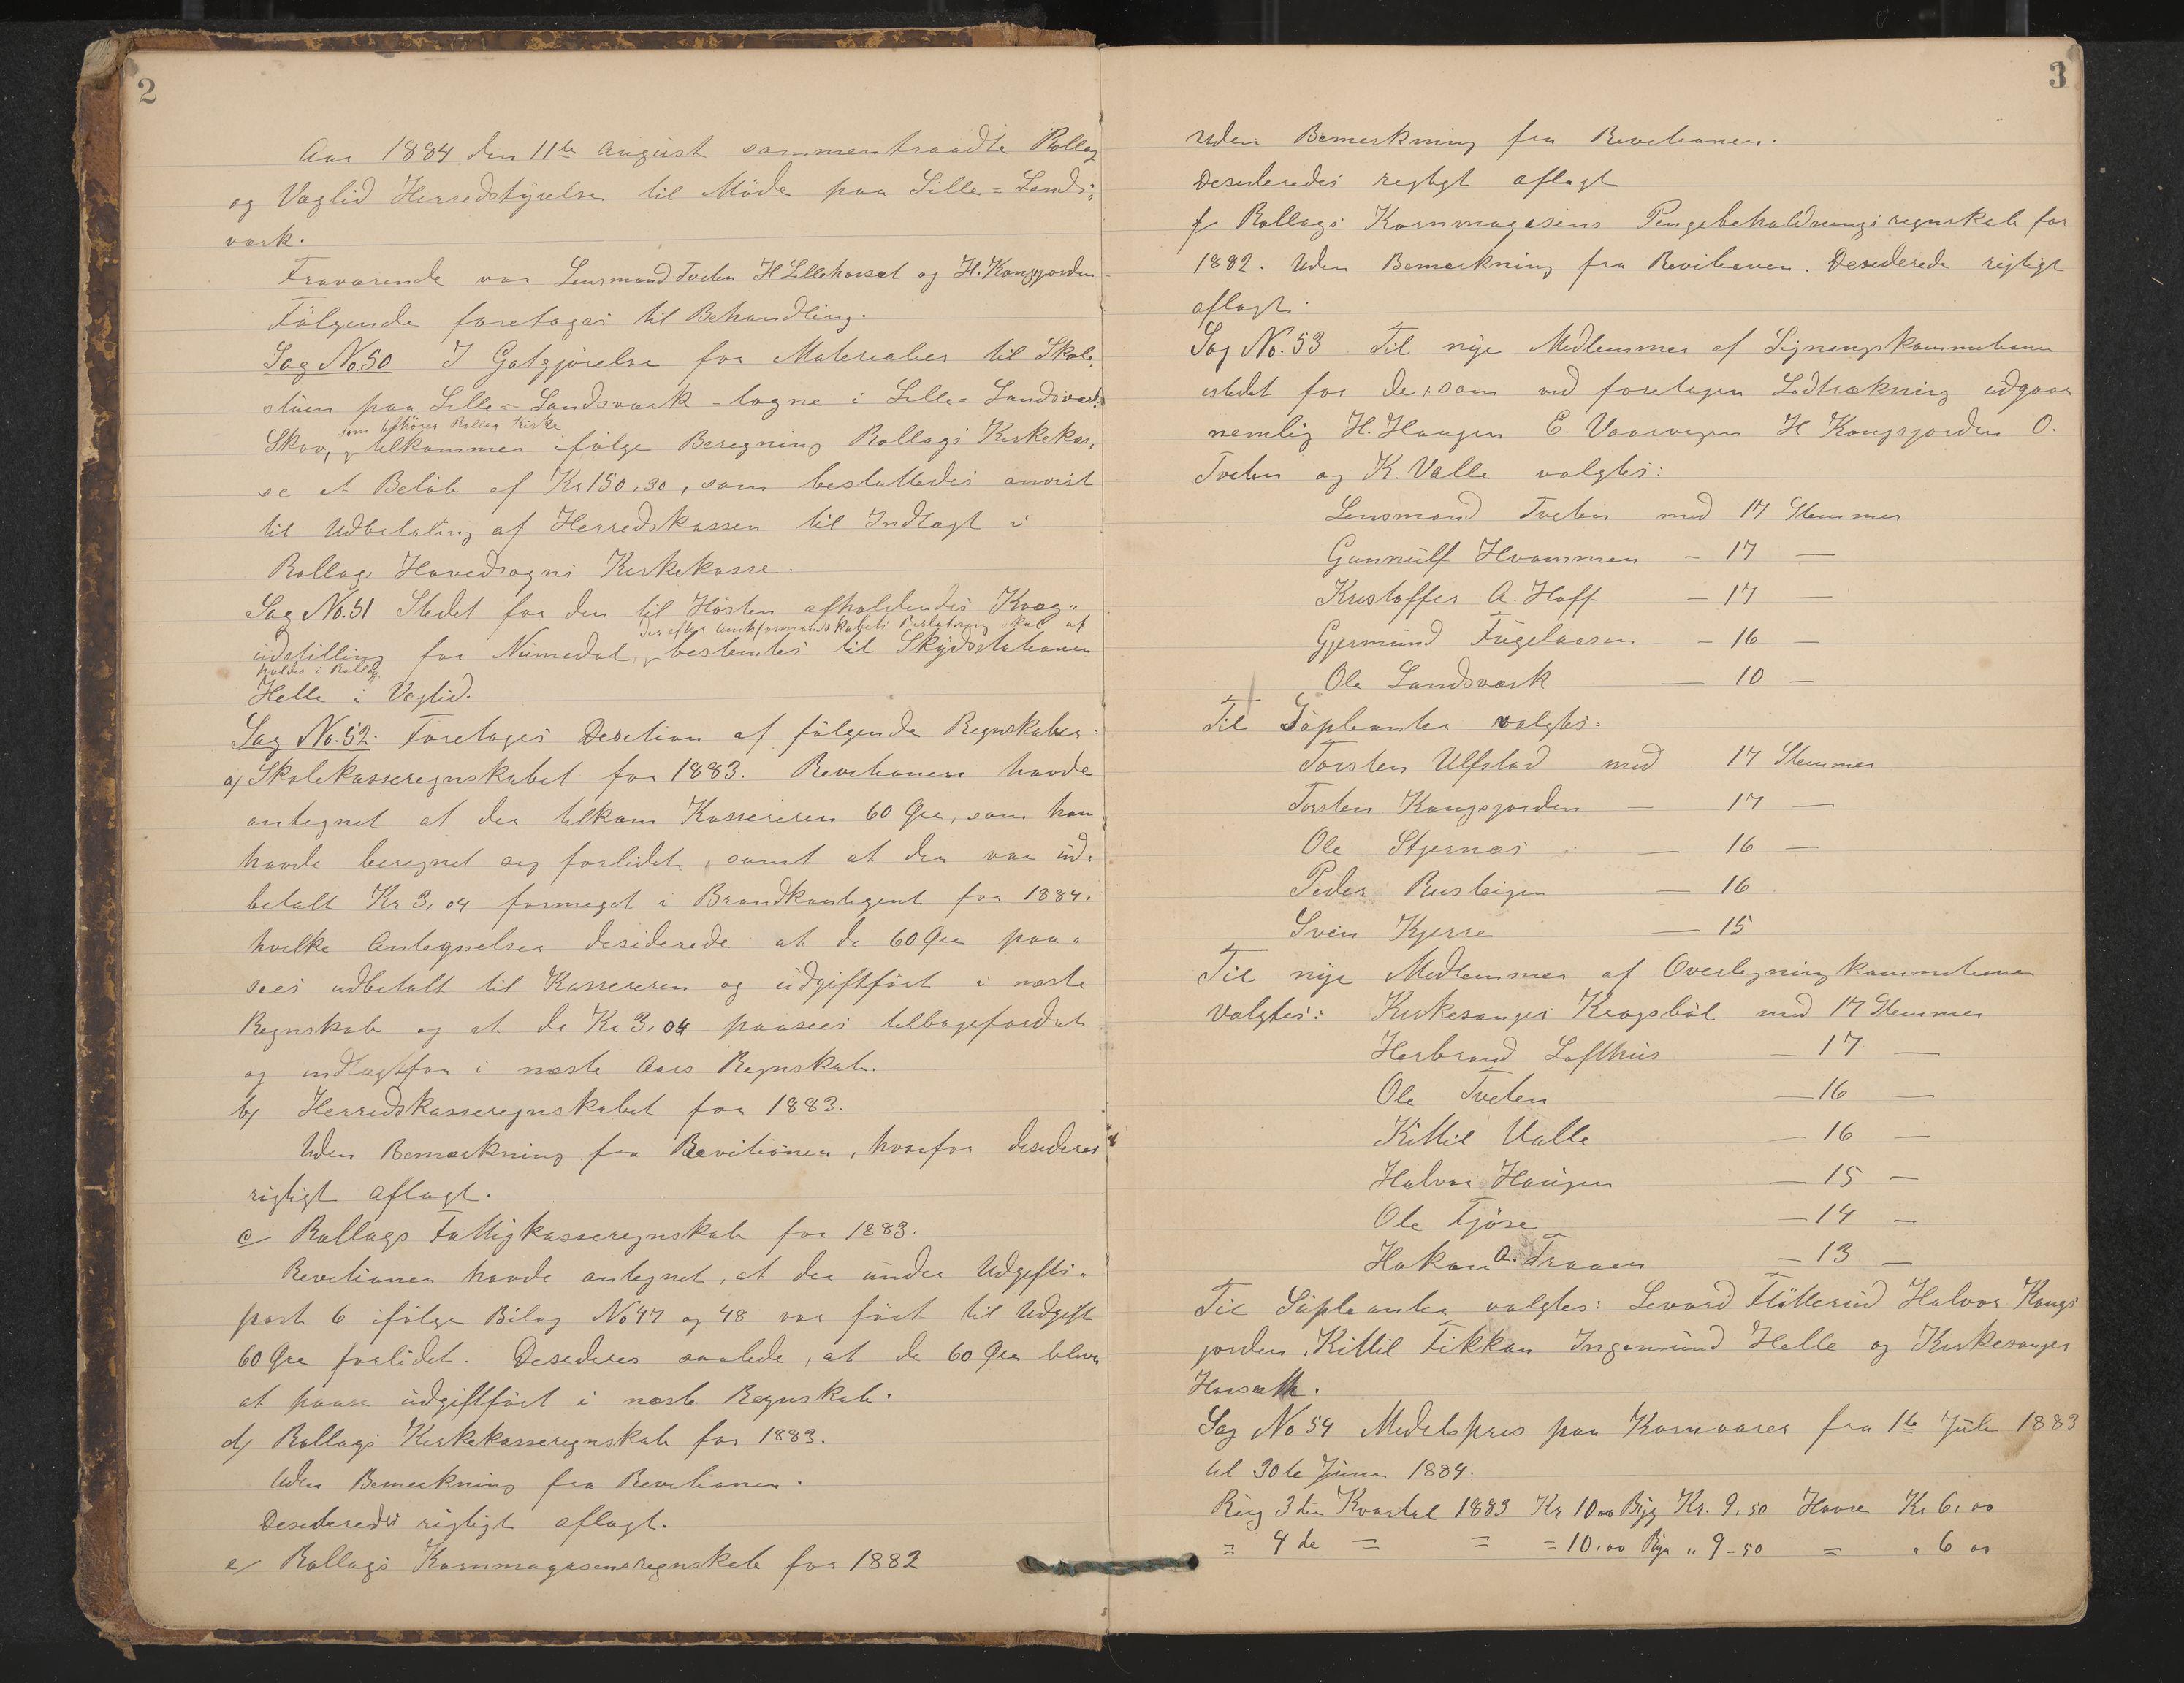 2
Aar 1884 den 11te August sammentraadte Rollag
og Væglid Herredstyrelse til Möde paa Lille=Lands=
værk.
Fraværende var Lensmand Tveten H Lillehorset og H. Kongsjorden
Fölgende foretoges til Behandling.
Sag No. 50 I Gotgjörelse for Materialier til Skole
stuen paa Lille=Landsværk - tagne i Lille=Landsværk
som tilhörer Rollag Kirke
Skov, tilkommer ifölge Beregning Rollags Kirkekas,
se et Belöb af Kr 150,30, som besluttedes anvist
til Udbetaling af Herredskassen til Indtægt i
Rollags Hovedsogns Kirkekasse.
Sag No. 51 Stedet for den til Hösten afholdendes Kvæg"
der efter Amtsformandskabets Beslutning skal af
udstilling for Numedal, bestemtes til Skydsstationen
holdes i Rollag
Helle i Veglid.
Sag No. 52. Foretoges Desition af fölgende Regnskaber.
a) Skolekasseregnskabet for 1883. Revitionen havde
antegnet at der tilkom Kassereren 60 Öre, som han
havde beregnet sig forlidet, samt at der var ud=
betalt Kr 3,04 formeget i Brandkontigent for 1884.
hvilke Antegnelser desiderede at de 60 Öre paa=
sees udbetalt til Kassereren og udgiftfört i næste
Regnskab og at de Kr 3,04 paasees tilbagefordret
og indtægtför i næste Aars Regnskab.
b) Herredskasseregnskabet for 1883.
Uden Bemærkning fra Revitionen, hvorfor desideres
rigtigt aflagt.
c Rollags Fattigkasseregnskab for 1883.
Revitionen havde antegnet, at der under Udgifts=
post 6 ifölge Bilag No 47 og 48 var fört til Udgift
60 Öre forlidet. Desideres saalede, at de 60 Öre bliver
at paase udgiftfört i næste Regnskab.
d) Rollags Kirkekasseregnskab for 1883.
Uden Bemerkning fra Revitionen.
Desideredes rigtigt aflagt.
e Rollags Kornmagasinsregnskab for 1882
3
Uden Bemerkning fra Revitionen.
Desideredes regtigt aflagt
f Rollags Kornmagasins Pengebeholdningsregnskab for
1882. Uden Bemærkning fra Revitionen. Desiderede rigtigt
aflagt.
Sag No. 53 Til nye Medlemmer af Ligningskommitionen
istedet for de, som ved foretagen Lodtrækning udgaar
nemlig H. Haugen E. Vaarvegen H Kongsjorden O.
Tveten og K. Valle valgtes:
Lensmand Tveten med 17 Stemmer
Gunnulf Hvammen - 17 —
Kristoffer A. Hoff - 17 —
Gjermund Fugelaasen - 16 —
Ole Landsværk — 10 —
Til Supleanter valgtes.
Torsten Ulfstad med 17 Stemmer
Torsten Kongsjorden — 17 —
Ole Stjernæs — 16 —
Peder Rusteigen — 16
Svein Kjerre — 15
Til nye Medlemmer af Overligningkommitionen
valgtes: Kirkesanger Kragsböl med 17 Stemmer
Herbrand Lofthus — 17 —
Ole Tveten — 16 —
Kittil Valle — 16 —
Halvor Haugen — 15 —
Ole Fjöse — 14 —
Hakon A. Traaen — 13 —
Til Supleanter valgtes: Levard Flötterud Halvor Kongs
jorden, Kittil Fikkan Ingemund Helle og Kirkesanger
Horsæth.
Sag No 54 Medelspris paa Kornvarer fra 1te Juli 1883
til 30te Juni 1884.
Rug 3die Kvartal 1883 Kr 10.00 Byg Kr. 9,50 Havre Kr 6,00
= 4de = = = 10,00 Byg " 9-50 = " 6 00